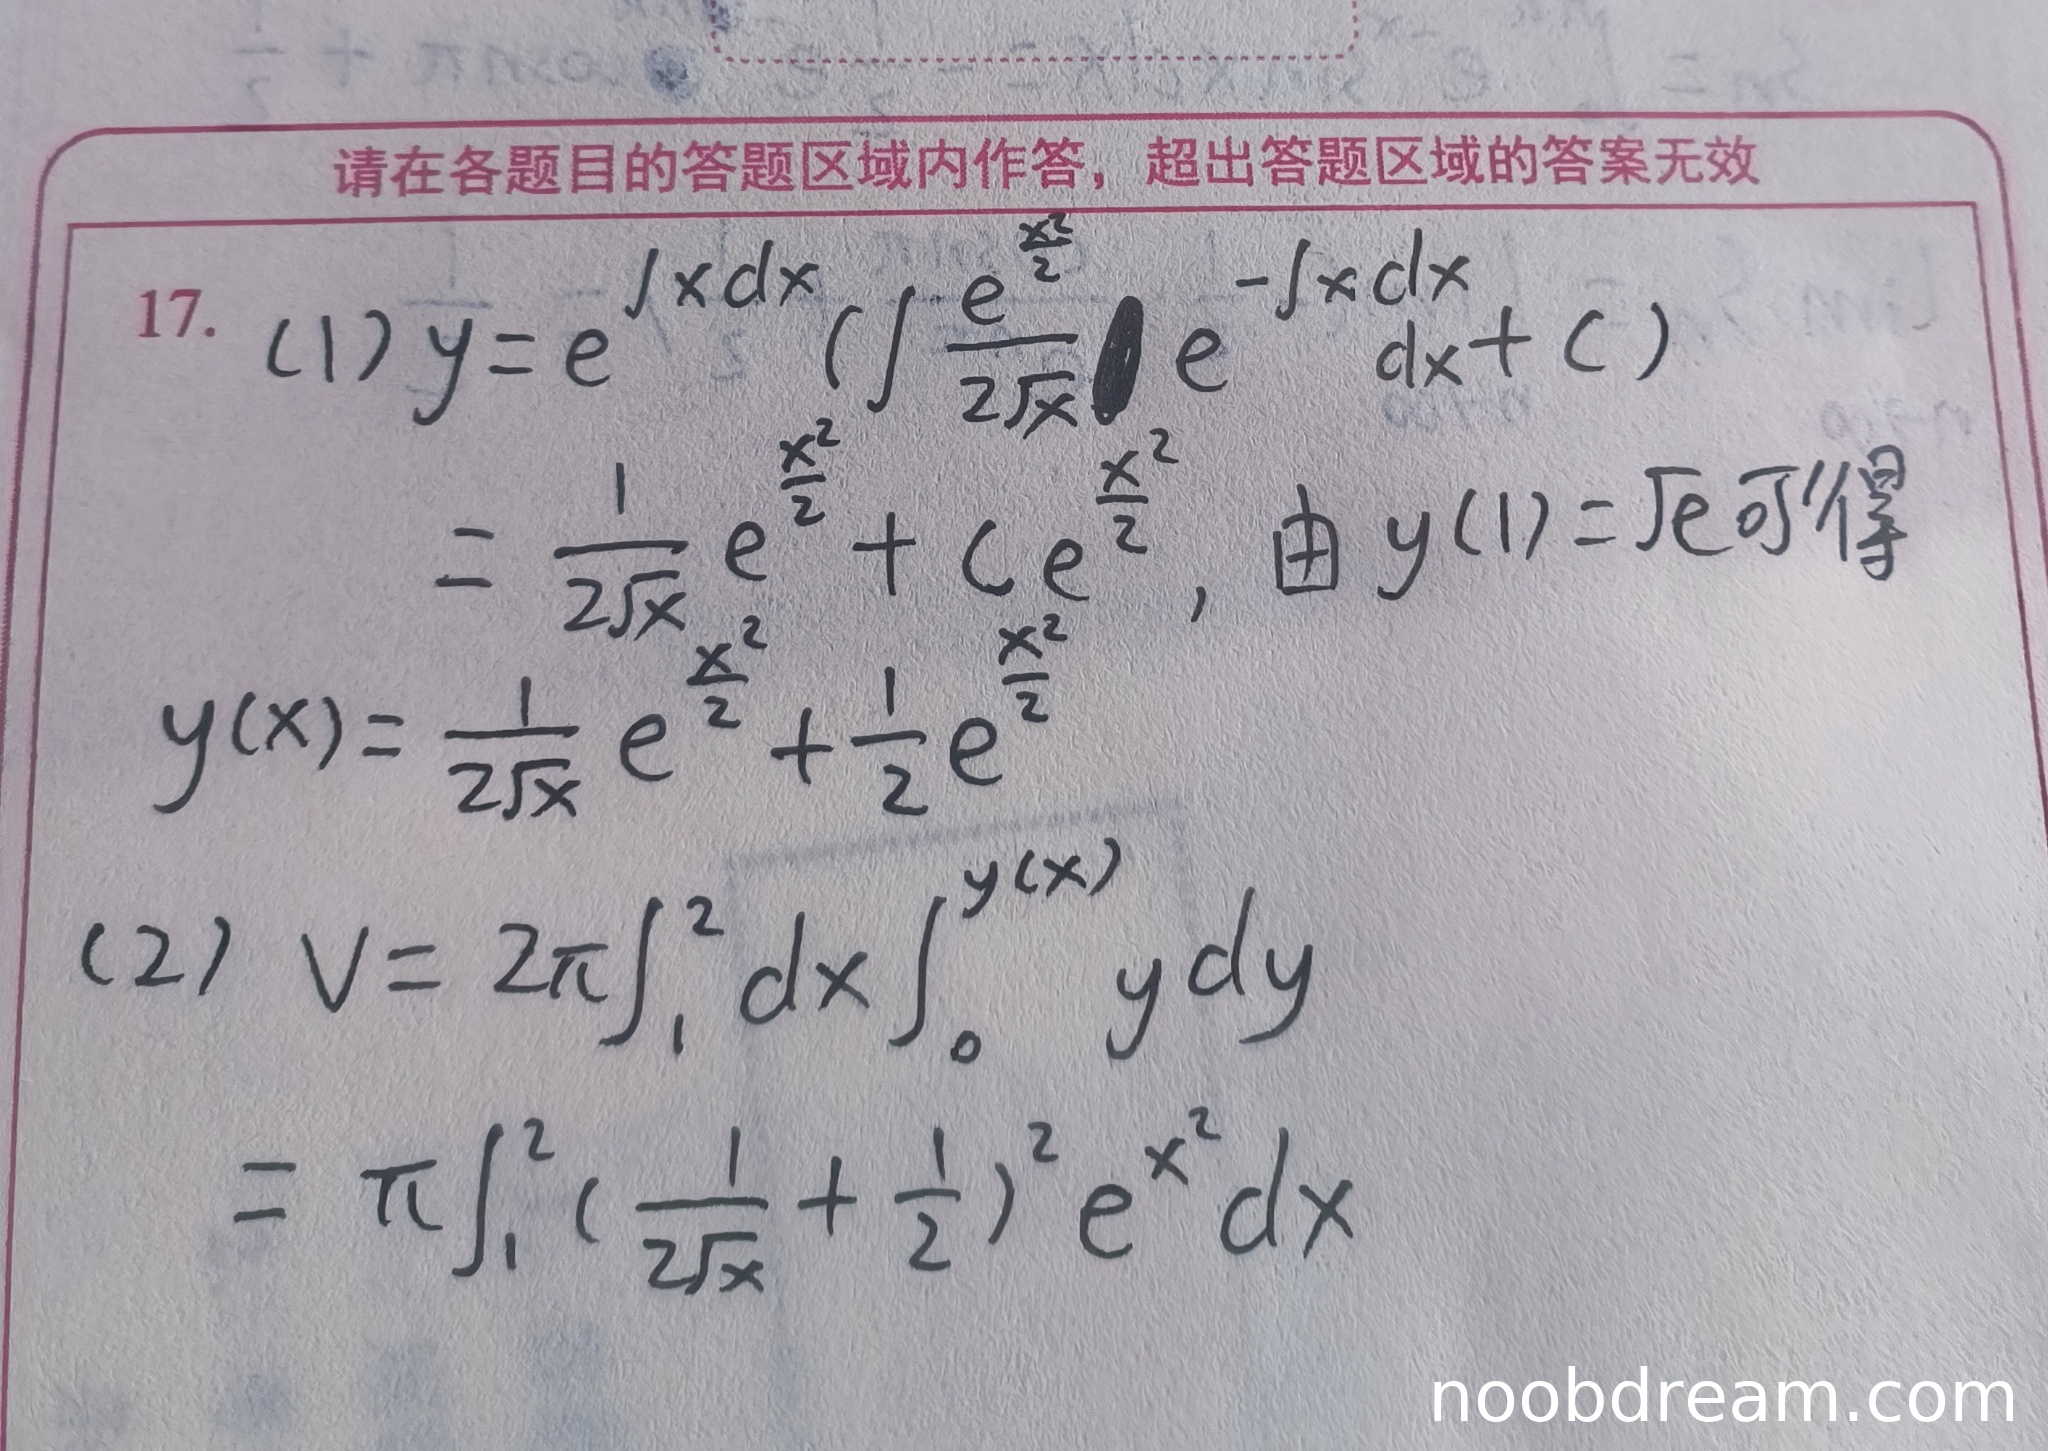 请在各题目的答题区域内作答，超出答题区域的答案无效
17. (1) y = e^{∫xdx} (∫ \frac{e^{\frac{x²}{2}}}{2√x} e^{-∫xdx} dx + C)
= \frac{1}{2√x} e^{\frac{x²}{2}} + C e^{\frac{x²}{2}}, 由 y(1) = √e 可得
y(x) = \frac{1}{2√x} e^{\frac{x²}{2}} + \frac{1}{2} e^{\frac{x²}{2}}
(2) V = 2π ∫_1^2 dx ∫_0^{y(x)} y dy
= π ∫_1^2 (\frac{1}{2√x} + \frac{1}{2})² e^{x²} dx
noobdream.com